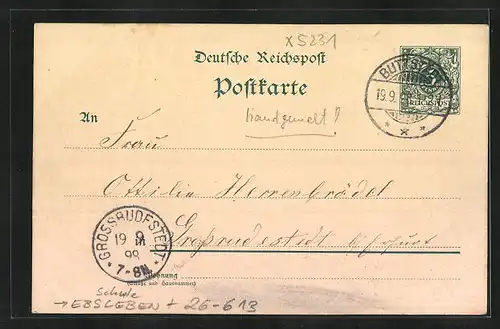 X5231
Deutsche Reichspost
Postkarte
Handgemalt!
An
BUTTST
19.9.
REICHSPOST
Frau
Ottilie Herrenbrödel
Großrudestedt b/Erfurt
GROSSRUDESTEDT
19 9 98
7-8N.
Wohnung
(Straße und Hausnummer)
Schule
→ EBSLEBEN + 26-613